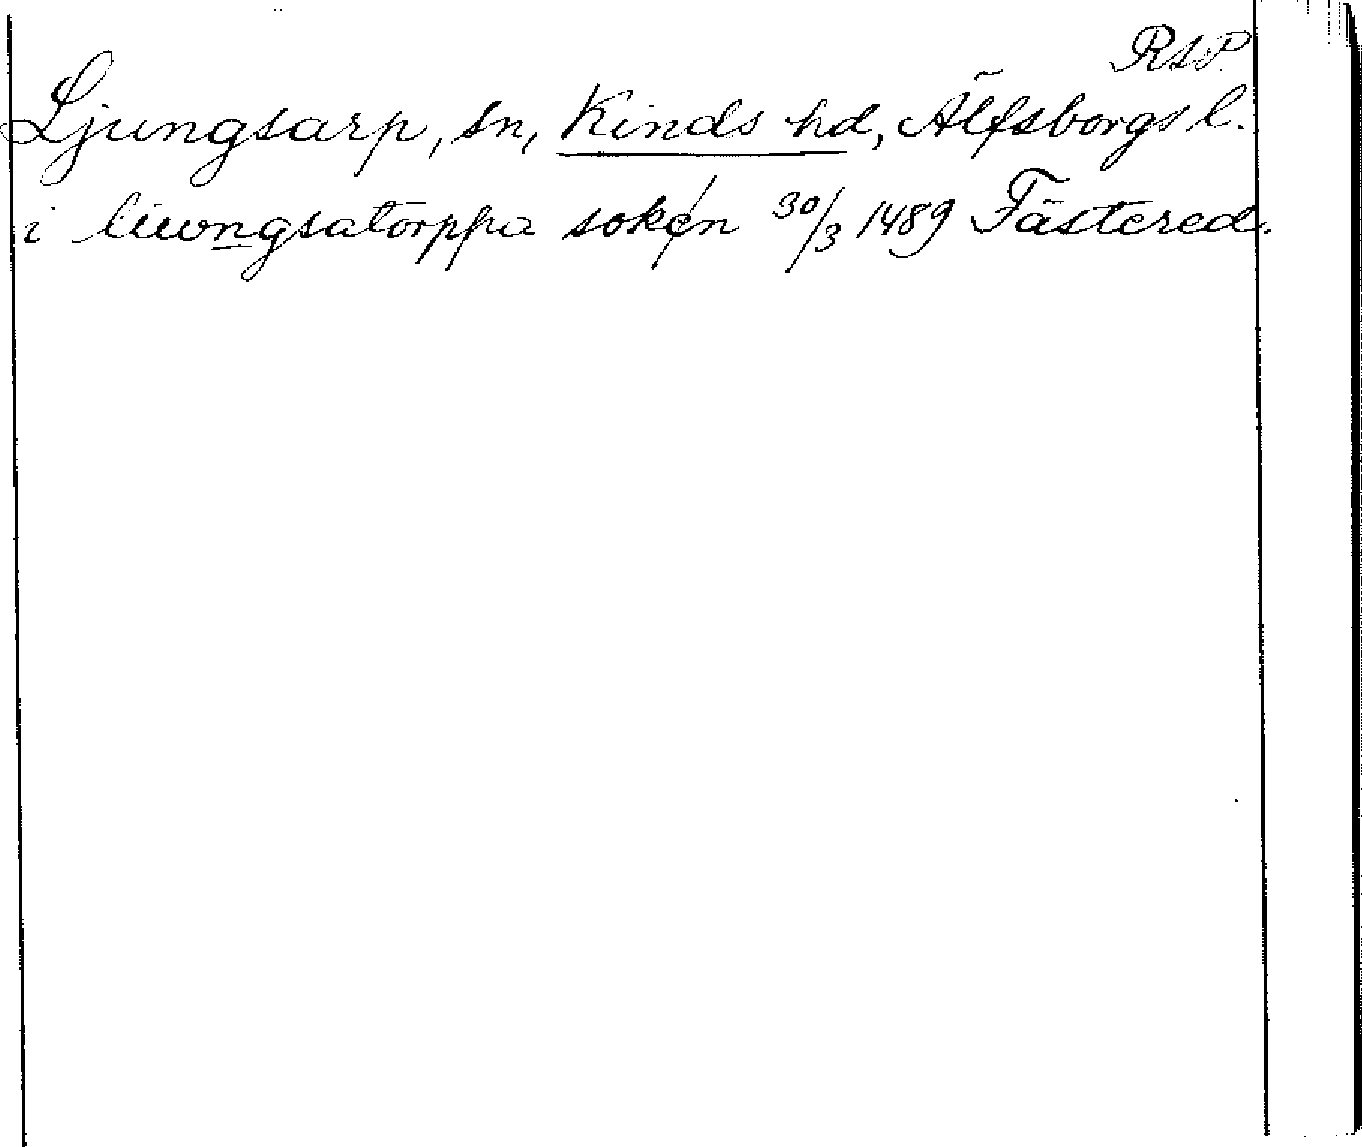 RAP.
Ljungsarp, sn, Kinds hd, Älfsborgs l.
i liwongsatorppa soken 30/3 1489 Tästered.